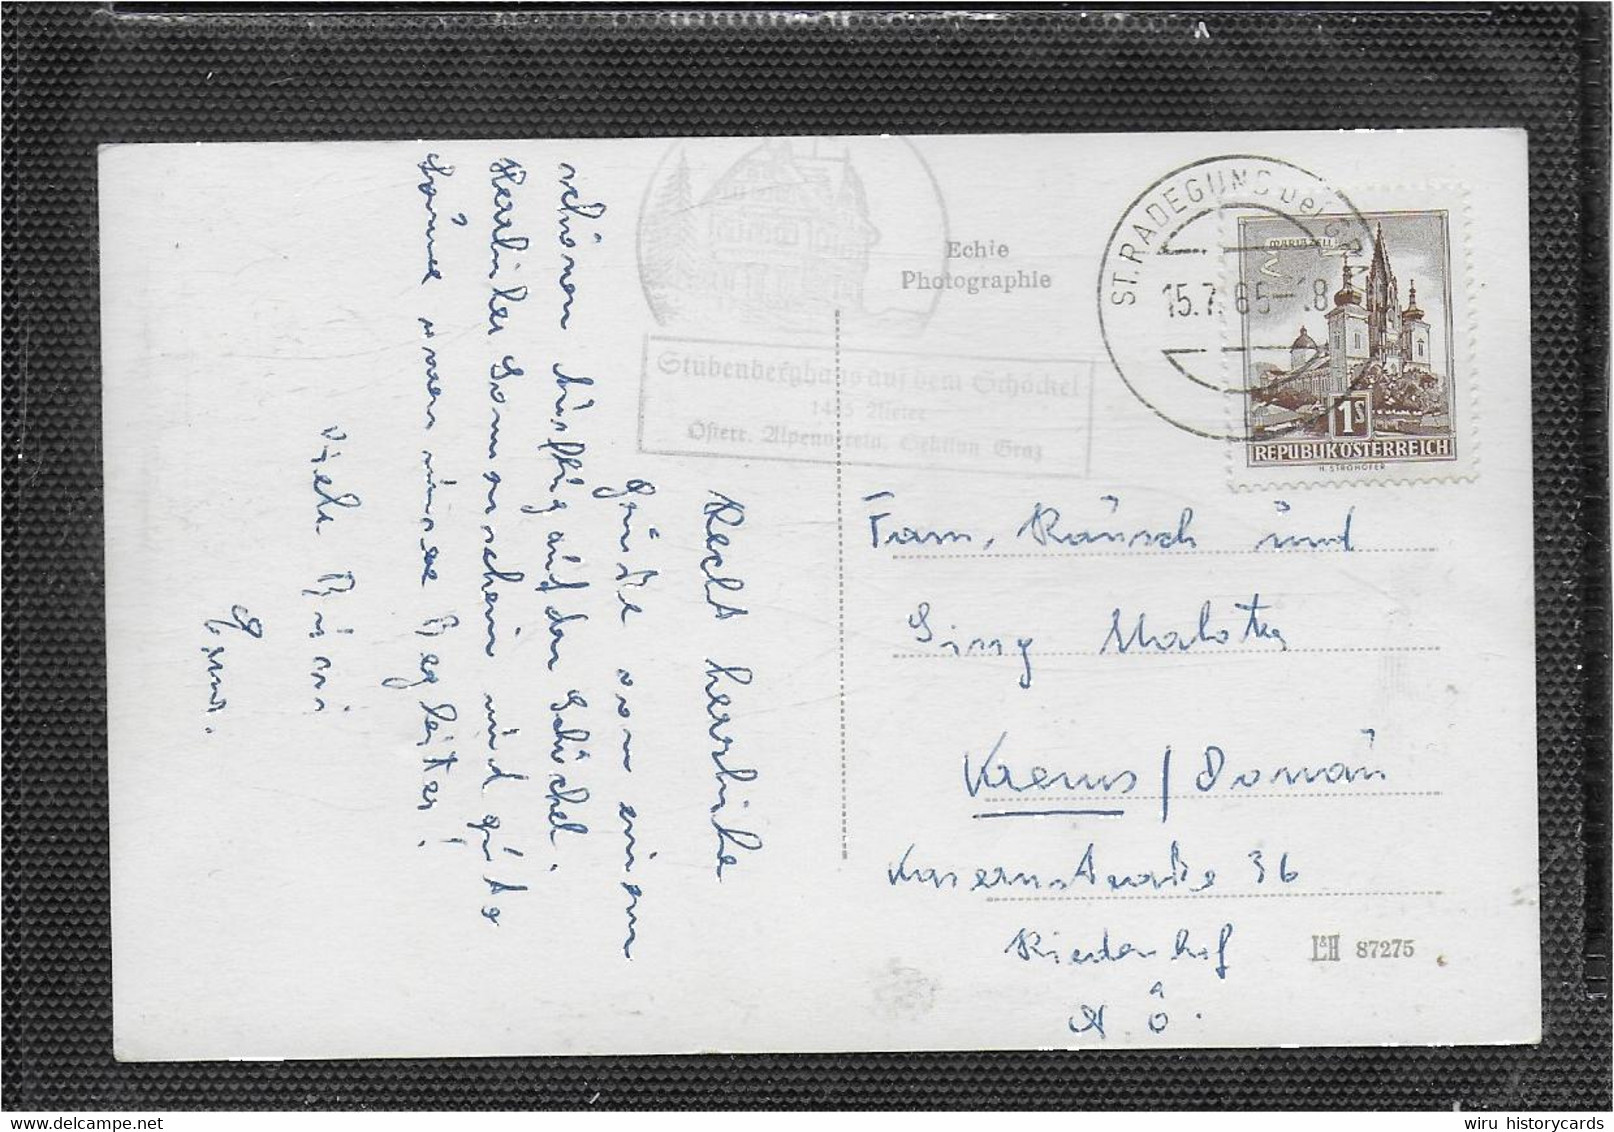 Echte
Photographie
ST. RADEGUND bei GRAZ
15.7.65-18
MARIAZELL
1S
REPUBLIK ÖSTERREICH
H. STROHOFER
Stubenberghaus auf dem Schöckel
1445 Meter
Österr. Alpenverein, Sektion Graz
Recht herzliche
Grüße von einem
schönen Ausflug auf den Schöckel.
Herrlicher Sonnenschein und gute
Laune waren unsere Begleiter!
Viele Bussi
Fam. Rausch und
Krems / Donau
Kasernstraße 36
N.Ö.
L&H 87275
wiru historycards